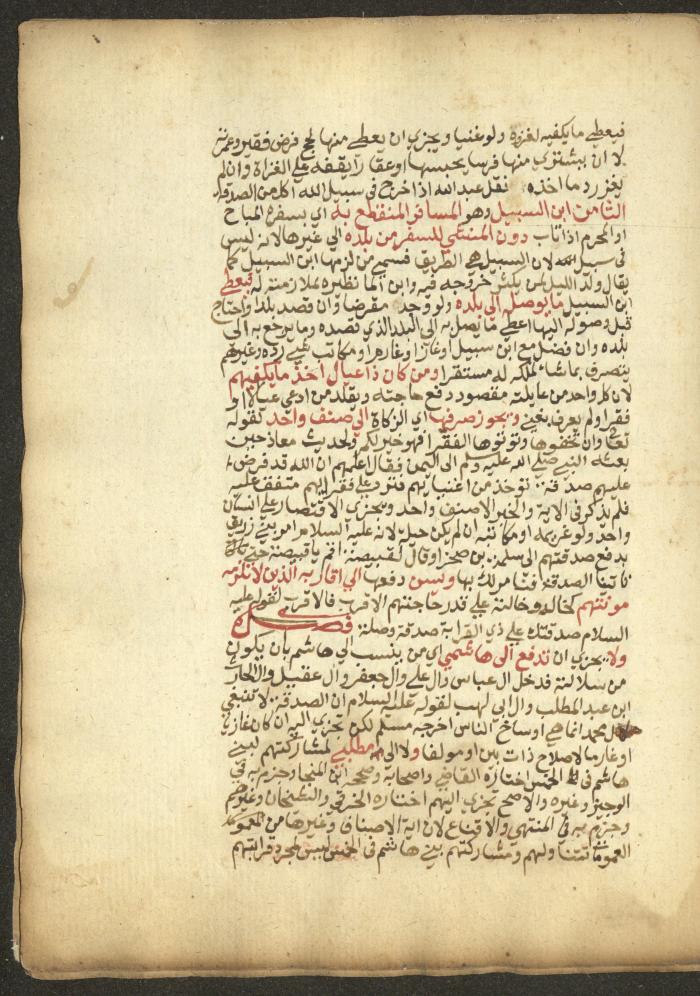 فيعطى ما يكفيه لغزوه ولو غنيا ويجزي ان يعطى منها لحج فرض فقير وعمرته
لا ان يشتري منها فرسا يحبسها او عقارا يقفه على الغزاة وان لم
يغز رد ما اخذه نقل عبد الله اذا خرج في سبيل الله اكل من الصدقة
الثامن ابن السبيل وهو المسافر المنقطع به اي بسفره المباح
او المحرم اذا تاب دون المنشئ للسفر من بلده الى غيرها لانه ليس
في سبيل لان السبيل هي الطريق فسمي من لزمها ابن السبيل كما
يقال ولد الليل لمن يكثر خروجه فيه وابن الما لطيره لملازمته له فيعطى
ابن السبيل ما يوصله الى بلده ولو وجد مقرضا وان قصد بلدا واحتاج
قبل وصوله اليها اعطي ما يصل به الى البلد الذي قصده وما يرجع به الى
بلده وان فضل مع ابن سبيل او غاز او غارم او مكاتب شي رده وغيرهم
يتصرف بما شا لملكه له مستقرا ومن كان ذا عيال اخذ ما يكفيهم
لان كل واحد من عايلته مقصود دفع حاجته ويقلد من ادعى عيالا او
فقرا ولم يعرف بغنى ويجوز صرفها اي الزكاة الى صنف واحد لقوله
تعالى وان تخفوها وتؤتوها الفقرا فهو خير لكم ولحديث معاذ حين
بعثه النبي صلى الله عليه وسلم الى اليمن فقال اعلمهم ان الله قد فرض
عليهم صدقة تؤخذ من اغنيايهم فترد على فقرايهم متفق عليه
فلم يذكر في الاية والخبر الا صنف واحد ويجزي الاقتصار على انسان
واحد ولو غريمه او مكاتبه ان لم يكن حيلة لانه عليه السلام امر بني زريق
بدفع صدقتهم الى سلمة بن صخر وقال لقبيصة اقم يا قبيصة حتى
تاتينا الصدقة فنامر لك بها ويسن دفعها الى اقاربه الذين لا تلزمه
مونتهم كخاله وخالته على قدر حاجتهم الاقرب فالاقرب لقوله عليه
السلام صدقتك على ذي القرابة صدقة وصلة فصل
ولا يجزي ان تدفع الى هاشمي اي من ينسب الى هاشم بان يكون
من سلالته فدخل ال عباس وال علي وال جعفر وال عقيل وال الحارث
ابن عبد المطلب وال ابي لهب لقوله عليه السلام ان الصدقة لا تنبغي
لال محمد انما هي اوساخ الناس اخرجه مسلم لكن تجزي اليه ان كان غازيا
او غارما لاصلاح ذات بين او مولفا ولا الى مطلبي لمشاركتهم لبني
هاشم في الخمس اختاره القاضي واصحابه وصححه ابن المنجا وجزم به في
الوجيز وغيره والاصح تجزي اليهم اختاره الخرقي والشيخان وغيرهم
وجزم به في المنتهى والاقناع لان اية الاصناف وغيرها من العمومات
تتناولهم ومشاركتهم بني هاشم في الخمس ليس لمجرد قرابتهم